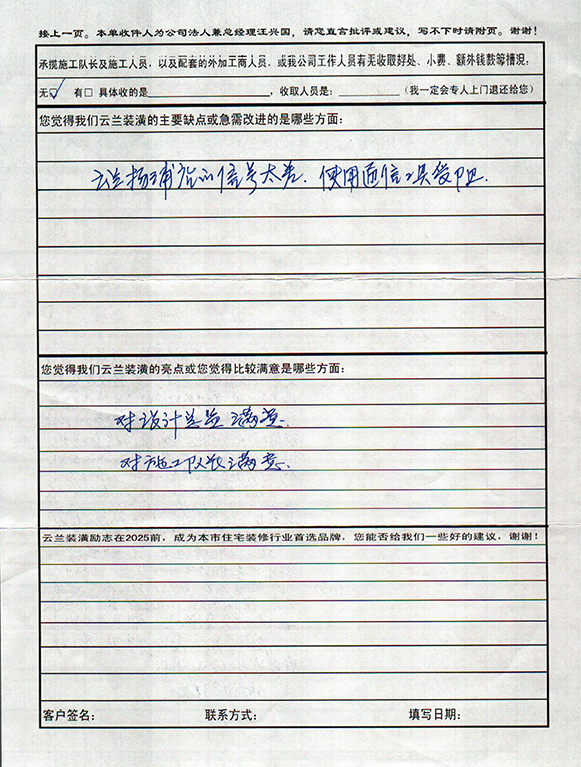 接上一页。本单收件人为公司法人兼总经理汪兴国，请您直言批评或建议，写不下时请附页。谢谢！
承揽施工队长及施工人员，以及配套的外加工商人员，或我公司工作人员有无收取好处、小费、额外钱款等情况：
无☑ 有□ 具体收的是____，收取人员是：____（我一定会专人上门退还给您）
您觉得我们云兰装潢的主要缺点或急需改进的是哪些方面：
云兰杨浦店的信号太差、使用通信工具受阻.
您觉得我们云兰装潢的亮点或您觉得比较满意是哪些方面：
对设计总监满意.
对施工队长满意.
云兰装潢励志在2025前，成为本市住宅装修行业首选品牌，您能否给我们一些好的建议，谢谢！
客户签名： 联系方式： 填写日期：